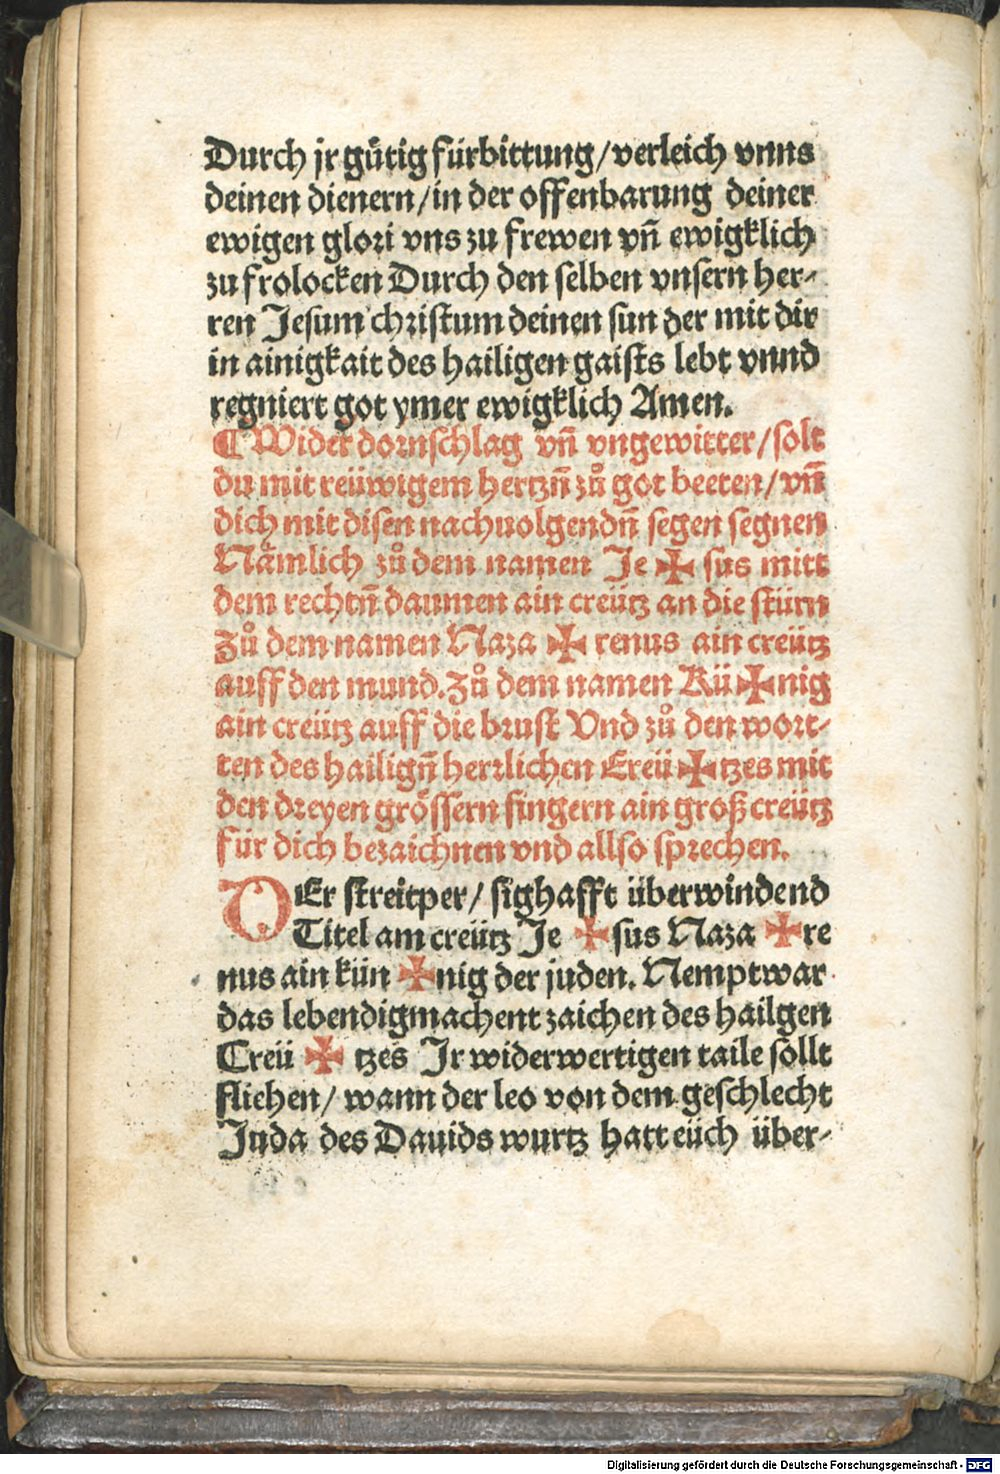 Durch jr gütig fürbittung/verleich vnns
deinen dienern/in der offenbarung deiner
ewigen glori vns zu frewen vn̄ ewigklich
zu frolocken Durch den selben vnsern her⸗
ren Jesum christum deinen sun der mit dir
in ainigkait des hailigen gaists lebt vnnd
regniert got ymer ewigklich Amen.
¶ Wider dornschlag vn̄ vngewitter/solt
du mit reüwigem hertzn̄ zů got beeten/vn̄
dich mit disen nachuolgendn̄ segen segnen
Nämlich zů dem namen Je ✠ sus mitt
dem rechtn̄ daumen ain creütz an die stürn
Zů dem namen Naza ✠ renus ain creütz
auff den mund. Zů dem namen Kü ✠ nig
ain creütz auff die brust Vnd zů den wort⸗
ten des hailign̄ herrlichen Creü ✠ tzes mit
den dreyen grössern fingern ain groß creütz
für dich bezaichnen vnd allso sprechen.
DEr streitper/ sighafft überwindend
Titel am creütz Je ✠ sus Naza ✠ re
nus ain kün ✠ nig der juden. Nempt war
das lebendigmachent zaichen des hailgen
Creü ✠ tzes Jr widerwertigen taile sollt
fliehen/ wann der leo von dem geschlecht
Juda des Dauids wurtz hatt eüch über⸗
Digitalisierung gefördert durch die Deutsche Forschungsgemeinschaft - DFG